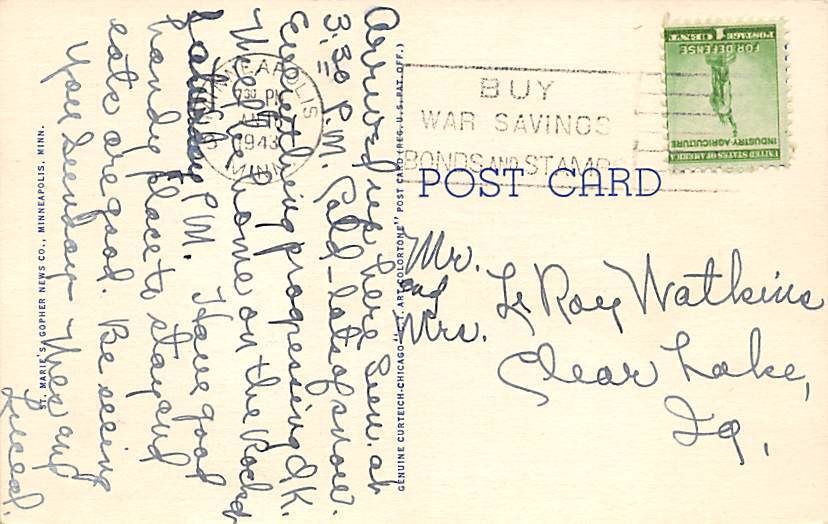 Arrived up here Sun. at
3:30 P.M. Cold - lots of snow.
Everything progressing O.K.
We'll be home on the Rocket
P.M. Have good
handy place to stay and
eats are good. Be seeing
you Sunday Wes and
Luceal.
MINNEAPOLIS
730 PM
1943
MINN.
BUY
WAR SAVINGS
BONDS AND STAMPS
UNITED STATES OF AMERICA
INDUSTRY-AGRICULTURE
FOR DEFENSE
POSTAGE 1 CENT
POST CARD
Mr.
and
Mrs.
Le Roy Watkins
Clear Lake,
Ia,
ST. MARIE'S GOPHER NEWS CO., MINNEAPOLIS, MINN.
GENUINE CURTEICH-CHICAGO "C.T. ART-COLORTONE" POST CARD (REG. U.S. PAT. OFF.)